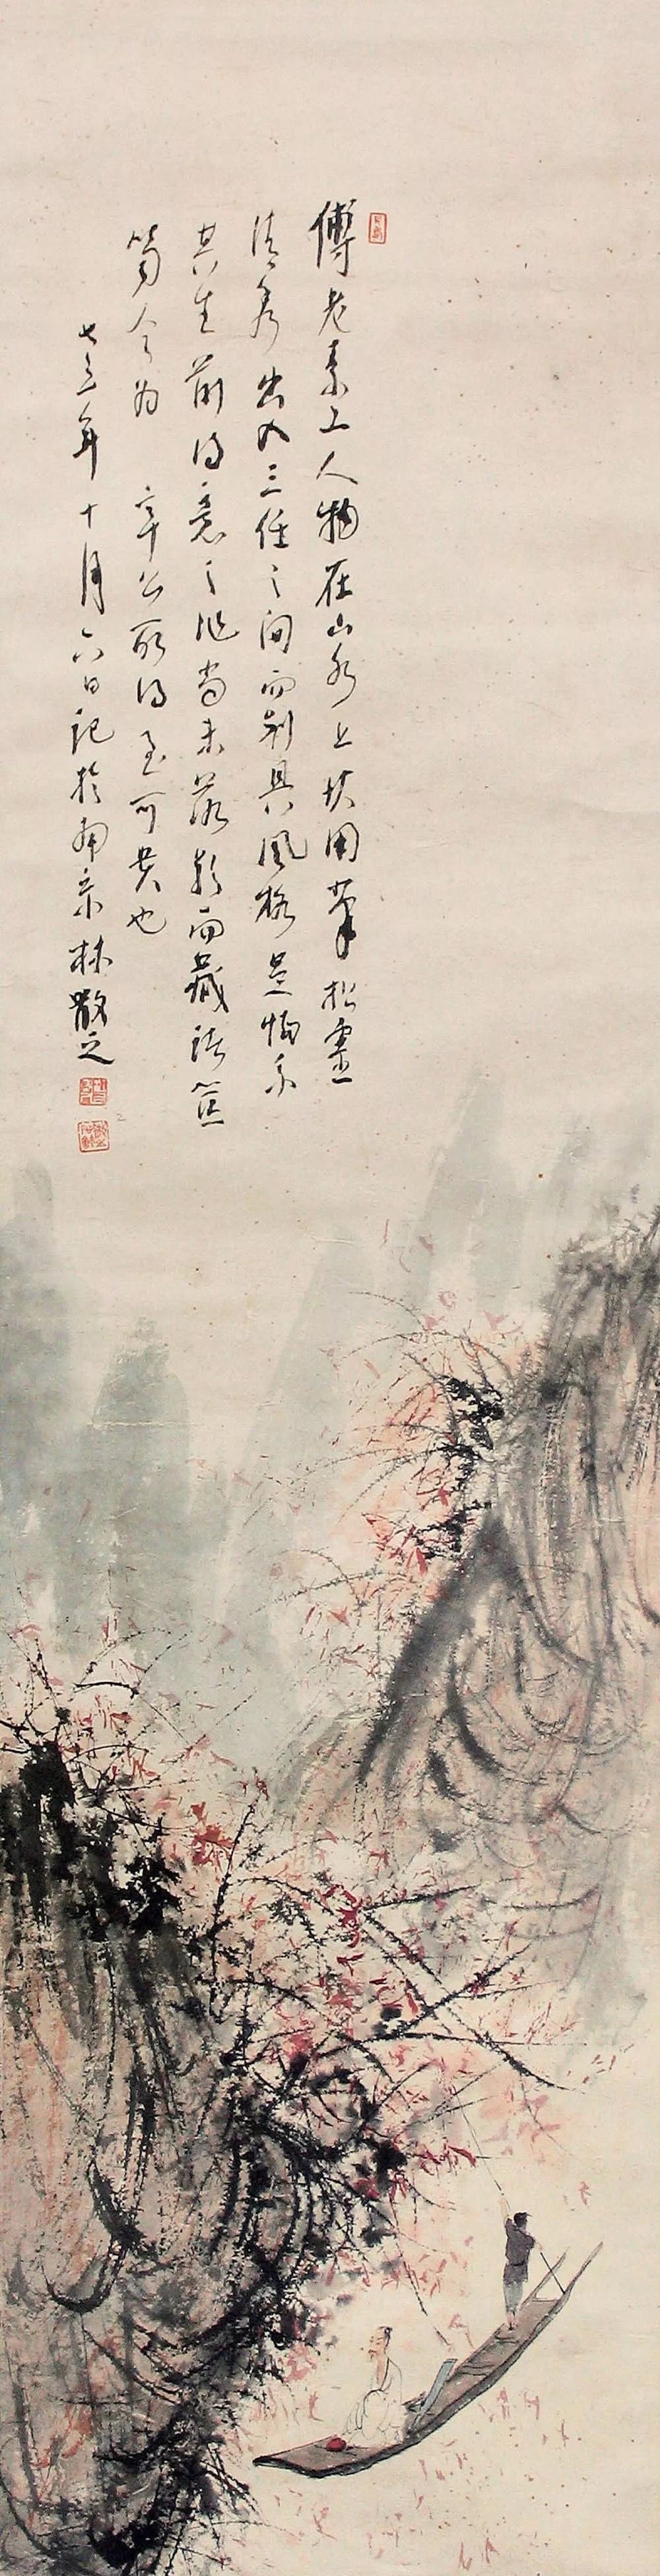 傅老素工人物在山水上扶用笔松灵
清秀出入三任之间而别具风格是幅系
其生前得意之作尚未落款而藏诸箧
笥今为 辛公所得至可贵也
七三年十月六日记于南京林散之